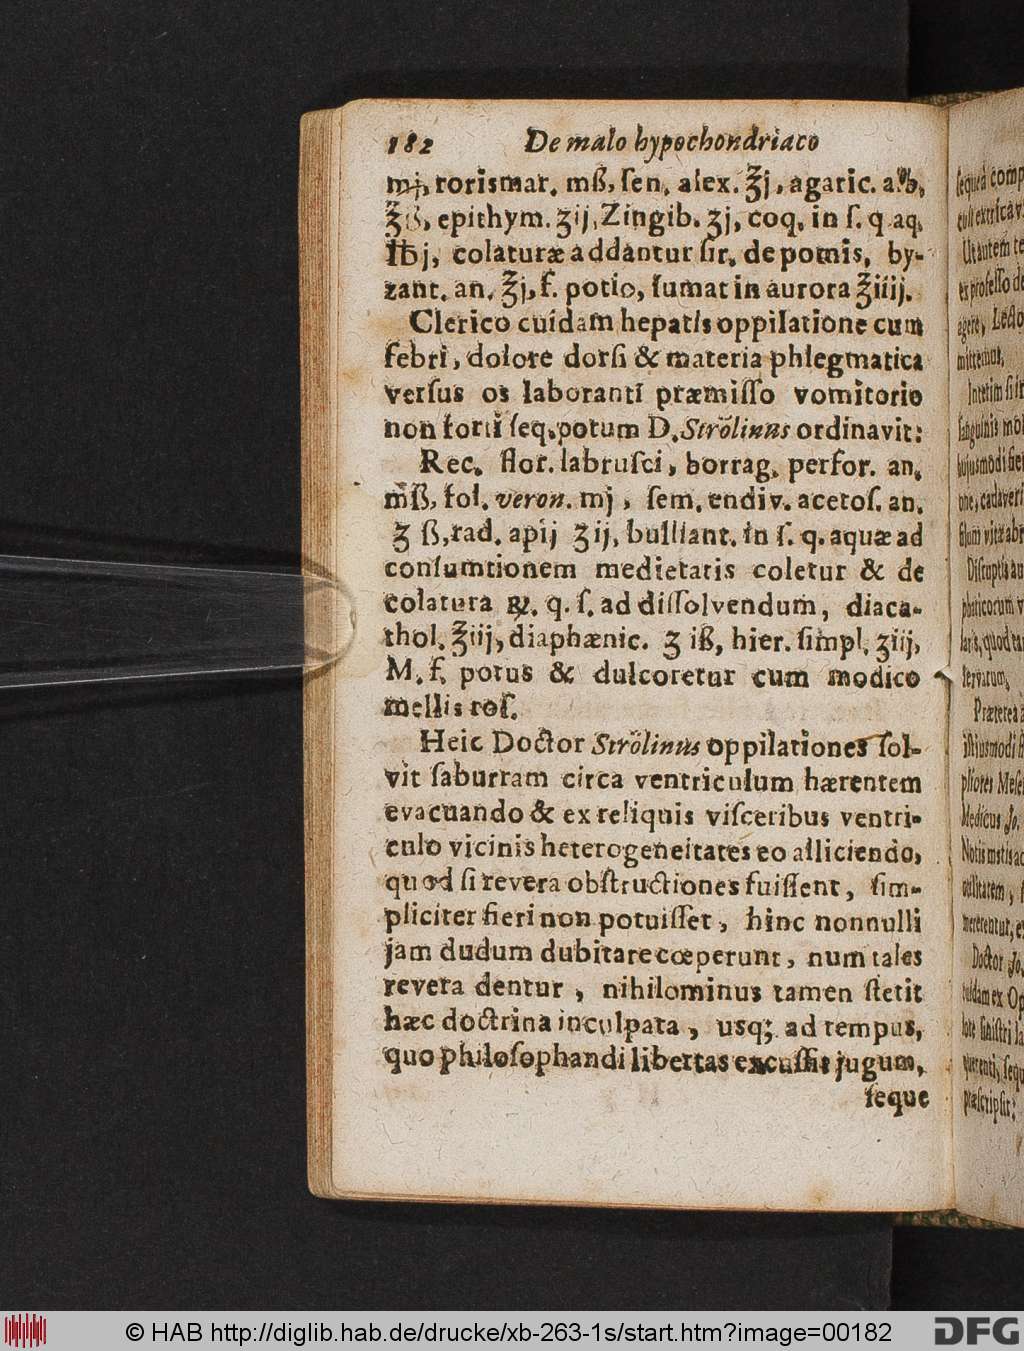 182 De malo hypochondriaco
mj, rorismar. mß, ſen. alex. ℥j, agaric. alb.
℥iß, epithym. ʒij, Zingib. ʒj, coq. in ſ. q aq.
℔j, colaturæ addantur ſir. de pomis, by-
zant. an. ℥j, f. potio, ſumat in aurora ℥iiij.
Clerico cuidam hepatis oppilatione cum
febri, dolore dorſi & materia phlegmatica
verſus os laboranti præmiſſo vomitorio
non forti ſeq. potum D. Strölinus ordinavit:
Rec. flor. labruſci, borrag. perfor. an.
mß, fol. veron. mj, ſem. endiv. acetoſ. an.
ʒ ß, rad. apij ʒij, bulliant. in ſ. q. aquæ ad
conſumtionem medietatis coletur & de
colatura ꝶ. q. ſ. ad diſſolvendum, diaca-
thol. ℥iij, diaphænic. ʒ iß, hier. ſimpl. ʒiij,
M. f. potus & dulcoretur cum modico
mellis roſ.
Heic Doctor Strölinus oppilationes ſol-
vit ſaburram circa ventriculum hærentem
evacuando & ex reliquis viſceribus ventri-
culo vicinis heterogeneitates eo alliciendo,
quod ſi revera obſtructiones fuiſſent, ſim-
pliciter fieri non potuiſſet, hinc nonnulli
jam dudum dubitare cœperunt, num tales
revera dentur, nihilominus tamen ſtetit
hæc doctrina inculpata, usq; ad tempus,
quo philoſophandi libertas excuſſit jugum,
ſeque
© HAB http://diglib.hab.de/drucke/xb-263-1s/start.htm?image=00182
DFG